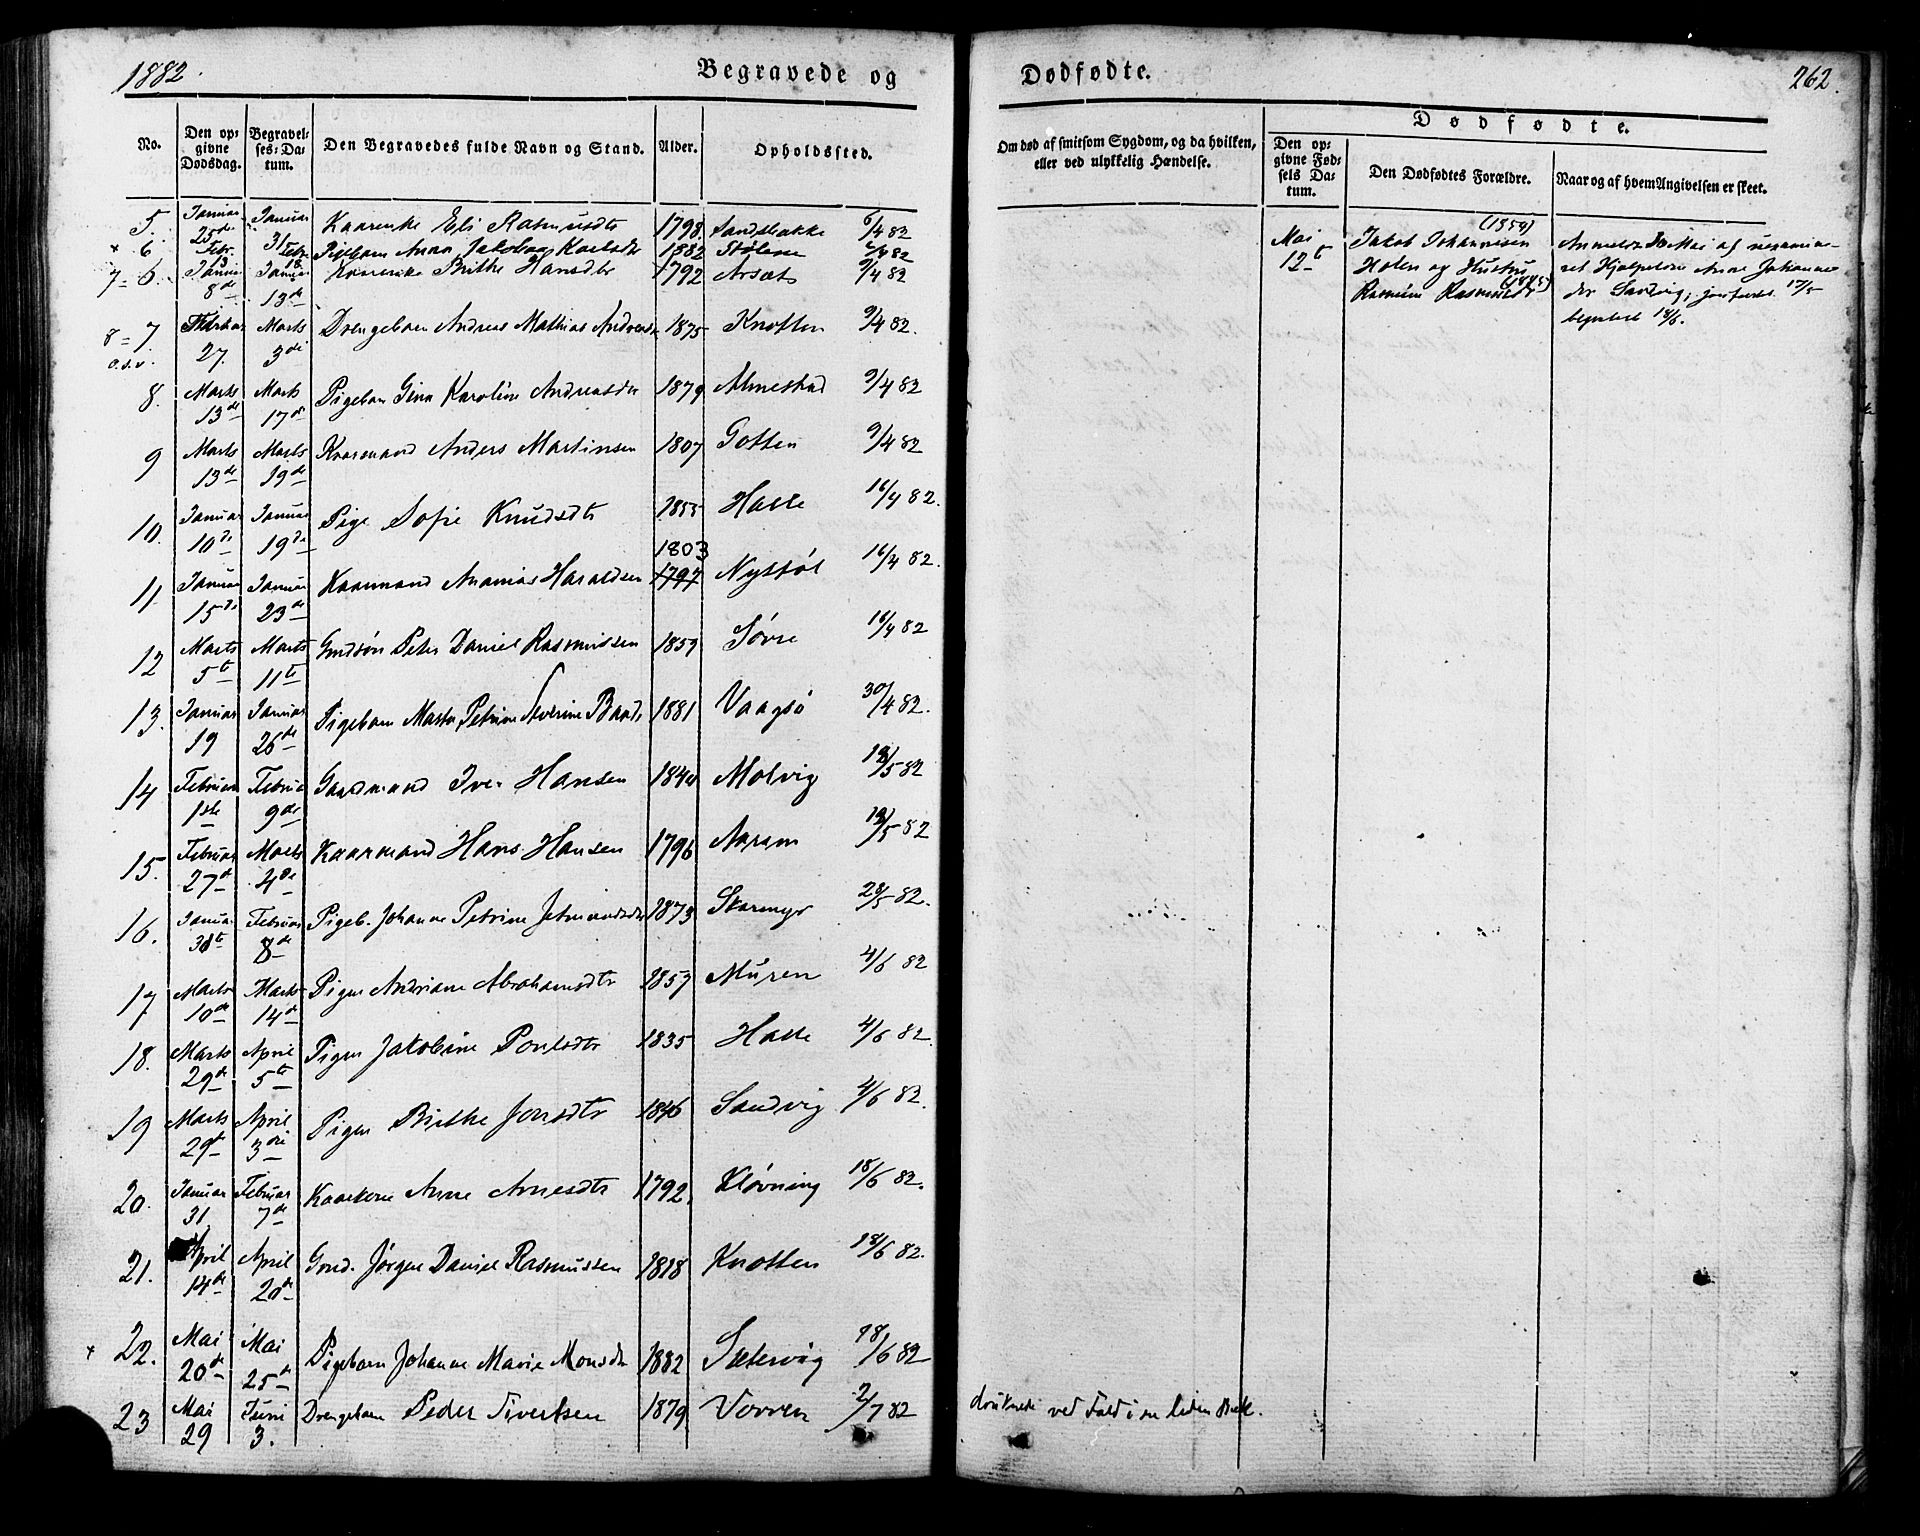 1882.
Begravede og
Dødfødte.
262.
No.
Den opgivne Dødsdag.
Begravelses-Datum.
Den Begravedes fulde Navn og Stand.
Alder.
Opholdssted.
Om død af smitsom Sygdom, og da hvilken, eller ved ulykkelig Hændelse.
Dødfødte.
Den opgivne Fødsels Datum.
Den Dødfødtes Forældre.
Naar og af hvem Angivelsen er skeet.
5. Januar 25de Januar 31 Eli Rasmusdtr 1798 Sandsbakke 6/4 82
6 Febr. 13 Febr. 18 Pigebarn Anna Jakobea Karlsdtr 1882 Stølene /4 82
7 = 6. Januar 8de Januar 13de Brithe Hansdtr 1792 Arsæt 9/4 82
8 = 7 o.s.v. Februar 27. Marts 3die Drengebarn Andreas Mathias Andreas 1875 Knotten 9/4 82.
8. Marts 13de Marts 17de Pigebarn Gina Karoline Andreasdtr 1879 Almestad 9/4 82
9 Marts 13de Marts 19de Kaarmand Anders Martinsen 1807 Gotten 9/4 82
10. Januar 10de Januar 19de Pige Sofie Knudsdtr 1855 Halle 16/4 82.
11 Januar 15de Januar 23de Kaarmand Ananias Haraldsen 1803 1797 Nystøl 16/4 82.
12 Marts 5te Marts 11te Gmdsøn Peter Daniel Rasmussen 1859 Søvre 16/4 82
13. Januar 19 Januar 26de Pigebarn Marta Petrine Severine 1881 Vaagsø 30/4 82.
14 Februar 1ste Februar 9de Gaardmand Iver Hansen 1840 Molvig /5 82
15. Februar 27de Marts 4de Kaarmand Hans Hansen 1796 Aaram /5 82
16. Januar 30te Februar 8de Pigeb. Johanne Petrine Jetmundsdtr 1873 Skarmyr 28/5 82.
17 Marts 10de Marts 14de Pigen Andriane Abrahamsdtr 1857 Muren 4/6 82
18. Marts 29de April 5te Pigen Jakobine Poulsdtr 1835 Halle 4/6 82.
19 Marts 29de April 3die Pigen Brithe Jonsdtr 1846 Sandvig 4/6 82.
20. Januar 31 Februar 7de Kaarkone Anne Arnesdtr 1792. Kløvning 18/6 82.
21. April 14de April 20de Gmd. Jørgen Daniel Rasmussen 1818 Knotten 18/6 82.
22. Mai 20de Mai 25de Pigebarn Johanne Marie Monsdtr 1882 Sætervig 18/6 82
23 Mai 29 Juni 3. Drengebarn Peder Sivertsen 1879 Vorren 2/7 82 druknede ved Fald i en liden Bæk.
Mai 12te
(1854)
Jakob Johannesen
Holen og Hustru
Rasmine Rasmusdtr
Anmeldt Mai af uexamine-
ret Hjælperske Anne Johannes
dtr Sandvig; jordfæstet 17/5
begravet 18/6.